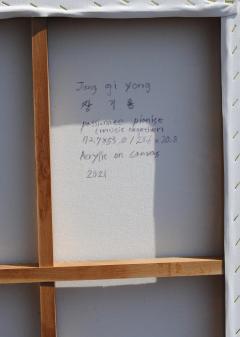 Jang gi yong
장 기 용
passionate pianist
(music together)
72.7x53.0 / 28.6 x 20.8
Acrylic on canvas
2021